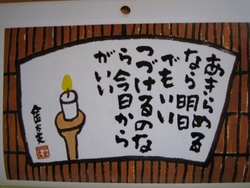 あきらめる
なら明日
でもいい
つづけるのな
ら今日から
がいい